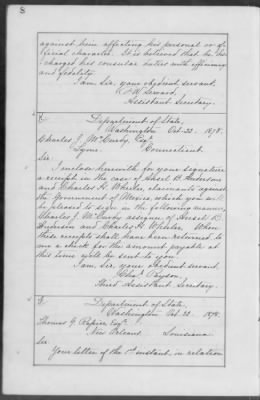 8
against him affecting his personal or of-
ficial character. It is believed that he dis-
charged his consular duties with efficiency
and fidelity.
I am, Sir, your obedient servant,
F. W. Seward,
Assistant Secretary.
Department of State,
Washington Oct. 22. 1878.
Charles J. McCurdy, Esqr.
Lyme, Connecticut.
Sir:
I enclose herewith for your signature
a receipt in the case of Ansel B. Anderson
and Charles H. Wheeler, claimants against
the government of Mexico, which you will
be pleased to sign in the following manner,
Charles J. McCurdy assignee of Ansel B.
Anderson and Charles H. Wheeler. When
this receipt shall have been returned to
me a check for the amount payable at
this time will be sent to you.
I am, Sir, your obedient servant,
Chas. Payson,
Third Assistant Secretary.
Department of State,
Washington, Oct. 22. 1878.
Thomas G. Rapier Esqr.
New Orleans. Louisiana
Sir
Your letter of the 1st instant, in relation